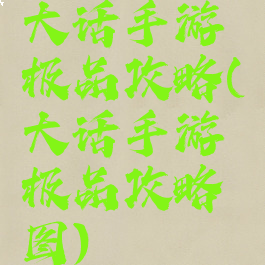 大话手游
极品攻略(
大话手游
极品攻略
图)